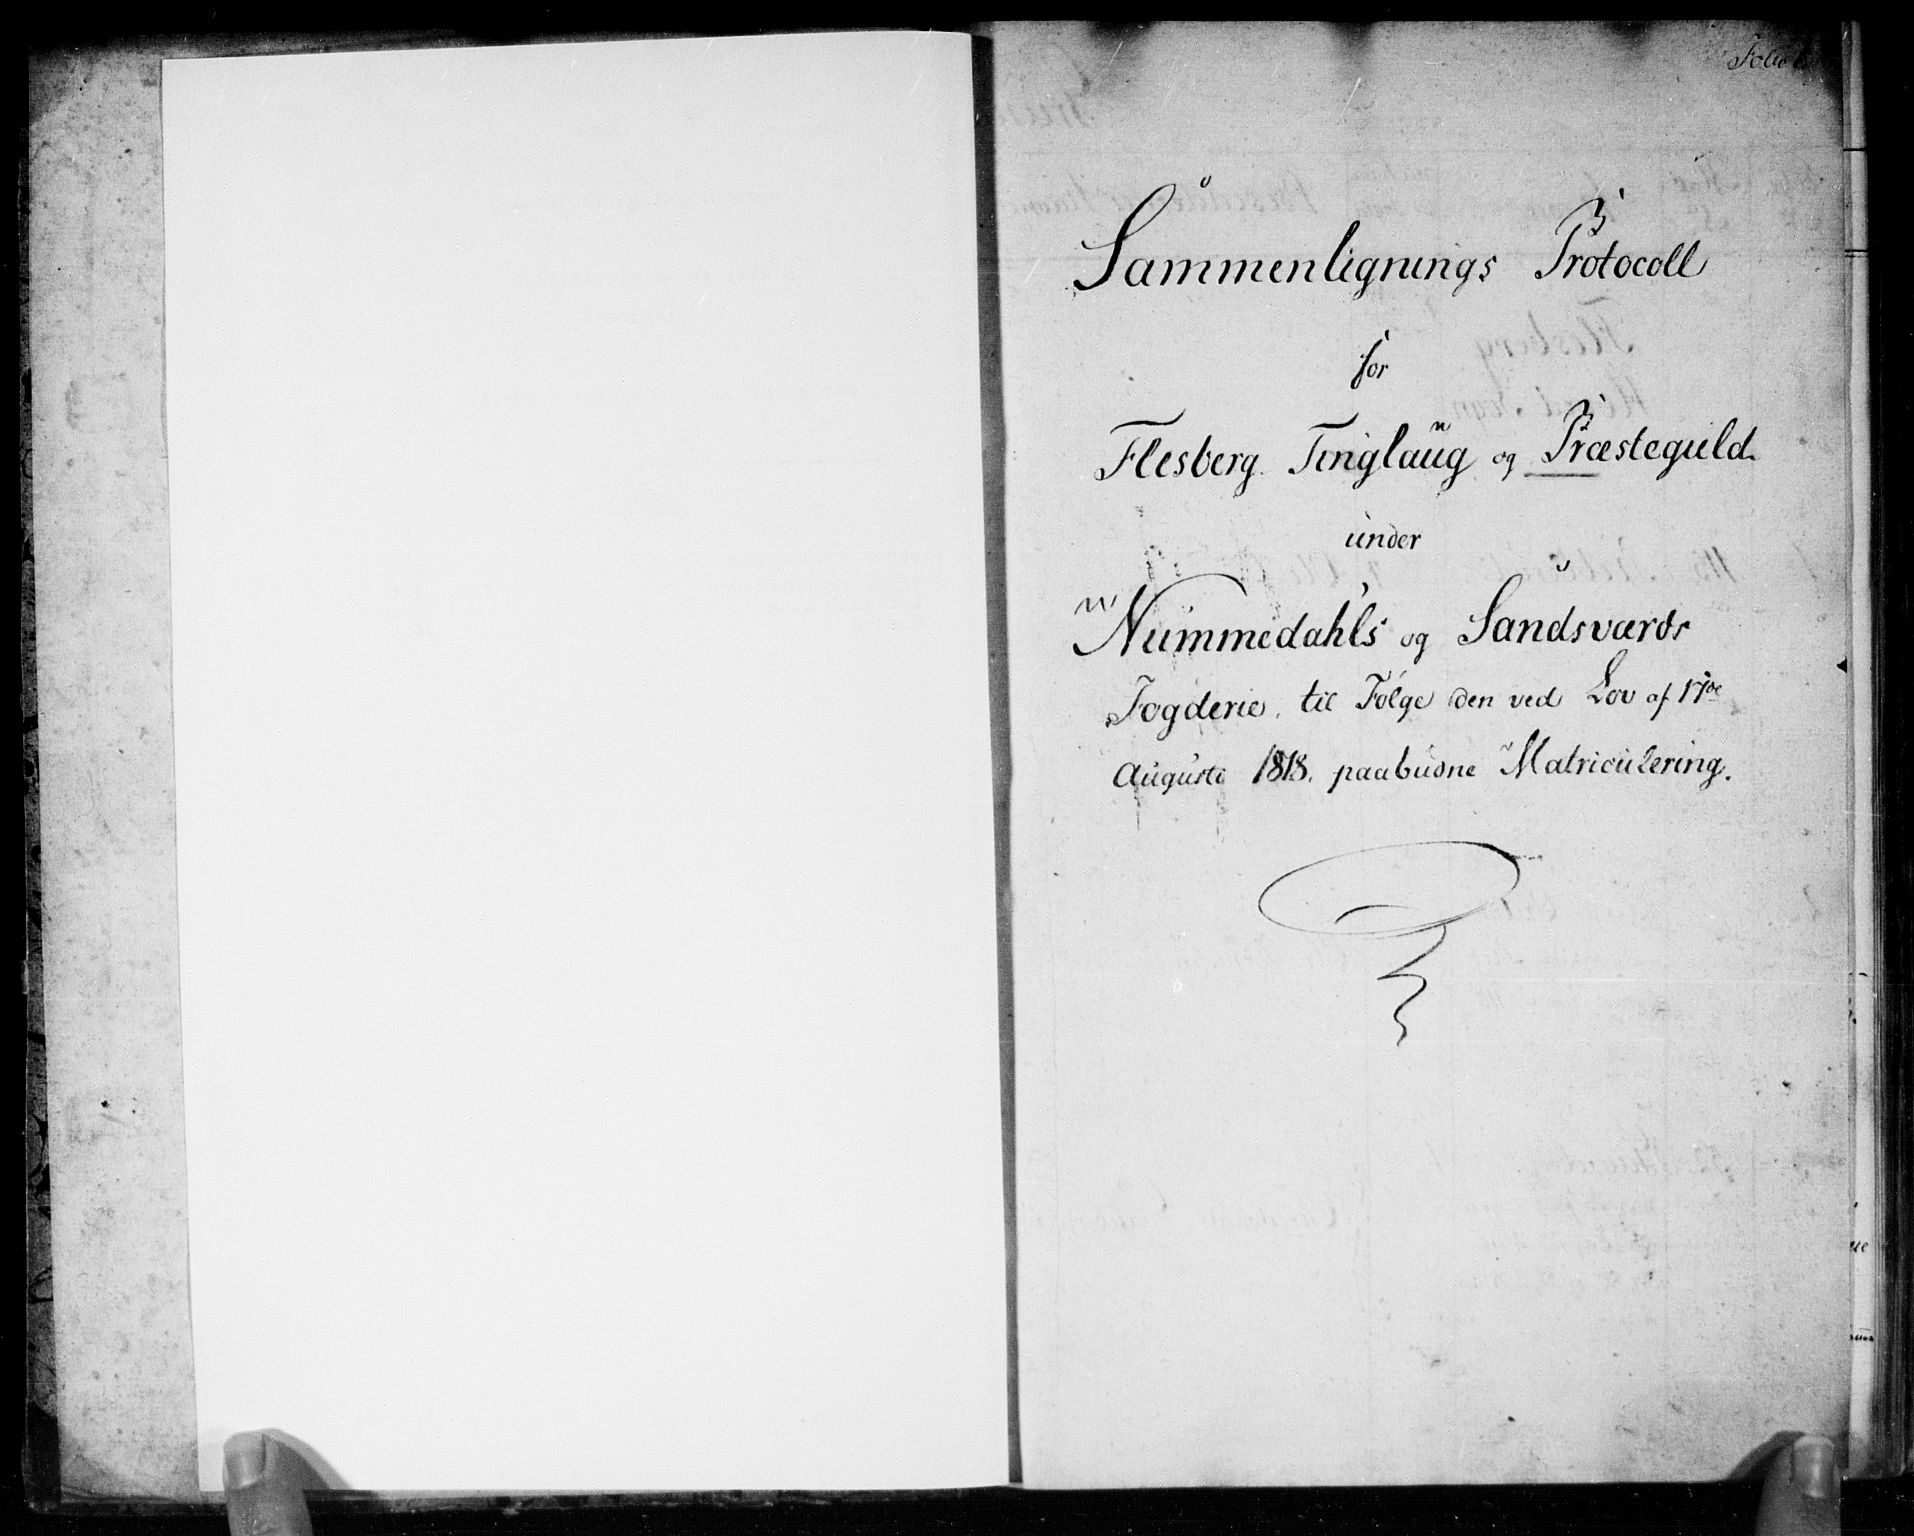 Folio
Sammenlignings Protocoll
for
Flesberg Tinglaug og Præstegield
under
Nummedahls og Sandsværds
Fogderie, til Følge den ved Lov af 17de
Augusti 1818. paabudne Matriculering.